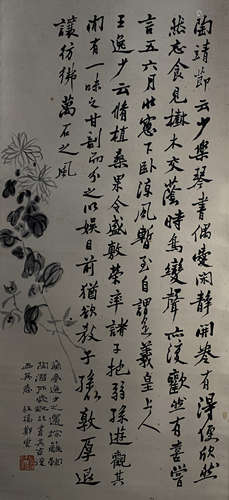 陶靖節云少樂琴書偶愛閑靜開卷有得便欣然
忘食見樹木交蔭時鳥變聲亦復歡然有喜嘗
言五六月北窓下卧涼風暫至自謂是羲皇上人
王逸少云脩植桑果今盛敷榮率諸子抱弱孫遊觀其
間有一味之甘割而分之以娛目前猶欲教子孫敦厚退
讓彷彿萬石之風